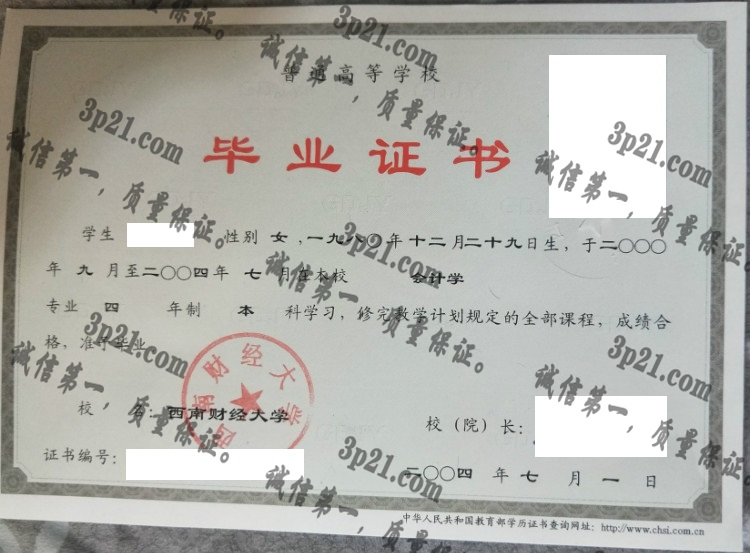 普通高等学校
毕业证书
学生 性别 女,一九八〇年十二月二十九日生,于二〇〇〇
年 九 月至二〇〇四年 七 月在本校 会计学
专业 四 年制 本 科学习,修完教学计划规定的全部课程,成绩合
格,准予毕业。
校 名:西南财经大学
校(院)长:
证书编号:
二〇〇四 年 七 月 一 日
中华人民共和国教育部学历证书查询网址:http://www.chsi.com.cn
西南财经大学
3p21.com
诚信第一,质量保证。
3p21.com
诚信第一,质量保证。
3p21.com
诚信第一,质量保证。
3p21.com
诚信第一,质量保证。
3p21.com
诚信第一,质量保证。
3p21.com
诚信第一,质量保证。